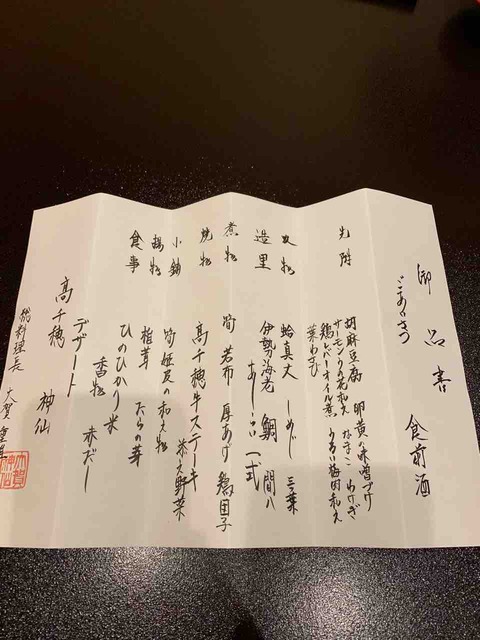 御品書
ごあいさつ 食前酒
先附 胡麻豆腐 卵黄味噌づけ
サーモン
鶏レバーオイル煮 うるい梅肉和え
葉わさび
吸物 蛤真丈 しめじ 三葉
造里 伊勢海老 鯛 間八
あしらい一式
煮物 筍 若布 厚あげ 鶏団子
焼物 高千穂牛ステーキ
添え野菜
小鉢 筍姫皮の和え物
揚物 椎茸 たらの芽
食事 ひのひかり米
香物 赤だし
デザート
高千穂 神仙
総料理長 大賀